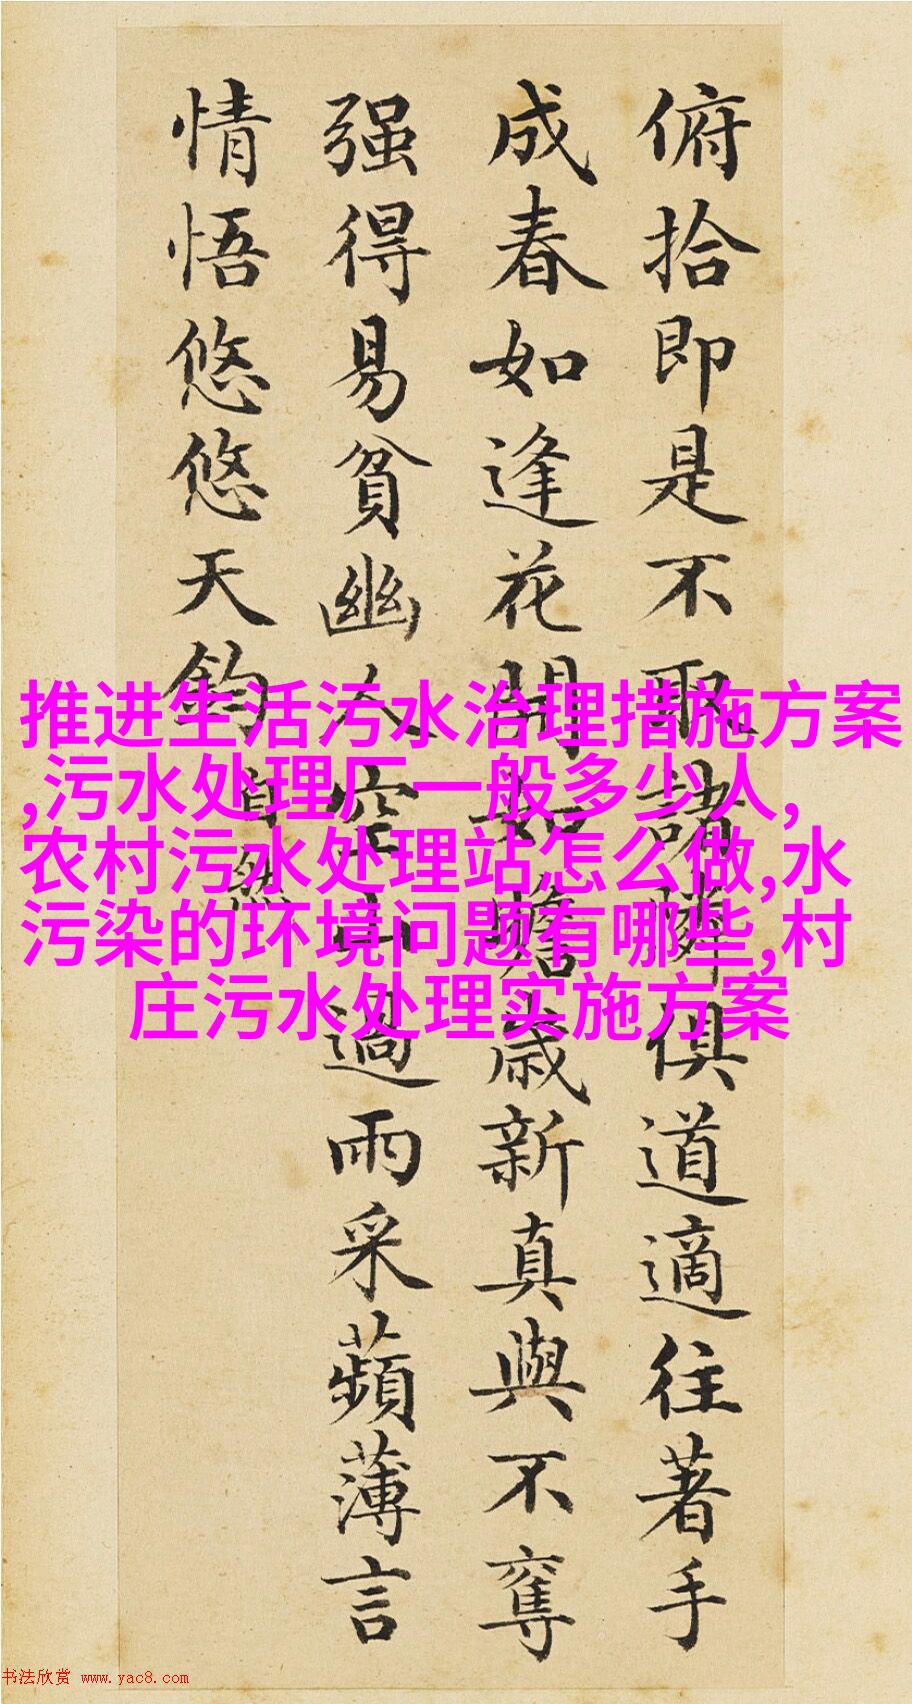 俯拾即是不取諸隣俱道適往著手
成春如逢花開如瞻歲新真與不奪
强得易貧幽人空山過雨采蘋薄言
情悟悠悠天鈞 自然
推进生活污水治理措施方案
,污水处理厂一般多少人,
农村污水处理站怎么做,水
污染的环境问题有哪些,村
庄污水处理实施方案
书法欣赏 www.yac8.com